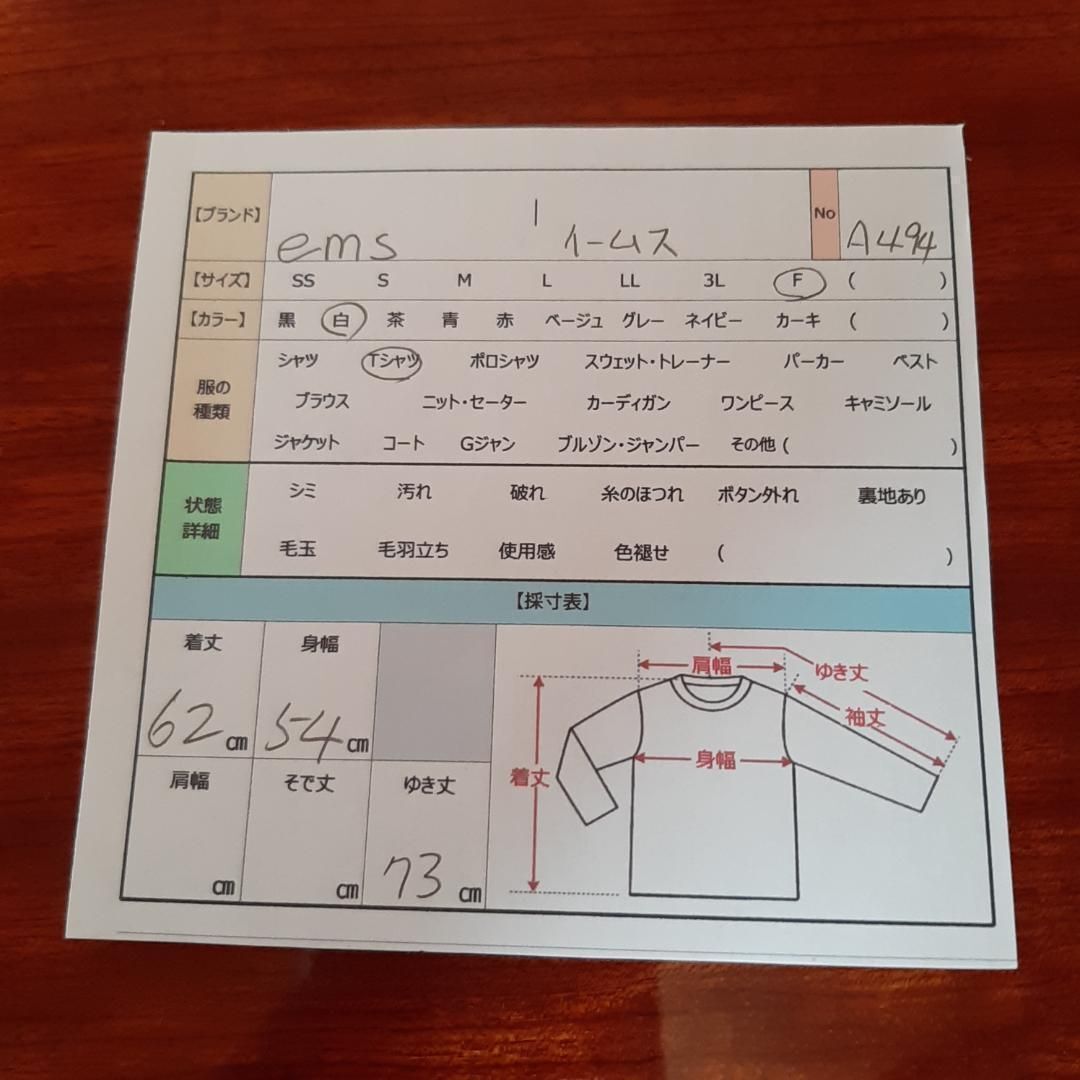 【ブランド】 ems | イームス No A494
【サイズ】 SS S M L LL 3L F ( )
【カラー】 黒 白 茶 青 赤 ベージュ グレー ネイビー カーキ ( )
服の種類
シャツ Tシャツ ポロシャツ スウェット・トレーナー パーカー ベスト
ブラウス ニット・セーター カーディガン ワンピース キャミソール
ジャケット コート Gジャン ブルゾン・ジャンパー その他 ( )
状態詳細
シミ 汚れ 破れ 糸のほつれ ボタン外れ 裏地あり
毛玉 毛羽立ち 使用感 色褪せ ( )
【採寸表】
着丈 身幅
62 cm 54 cm
肩幅 そで丈 ゆき丈
cm cm 73 cm
肩幅 ゆき丈
袖丈
身幅
着丈